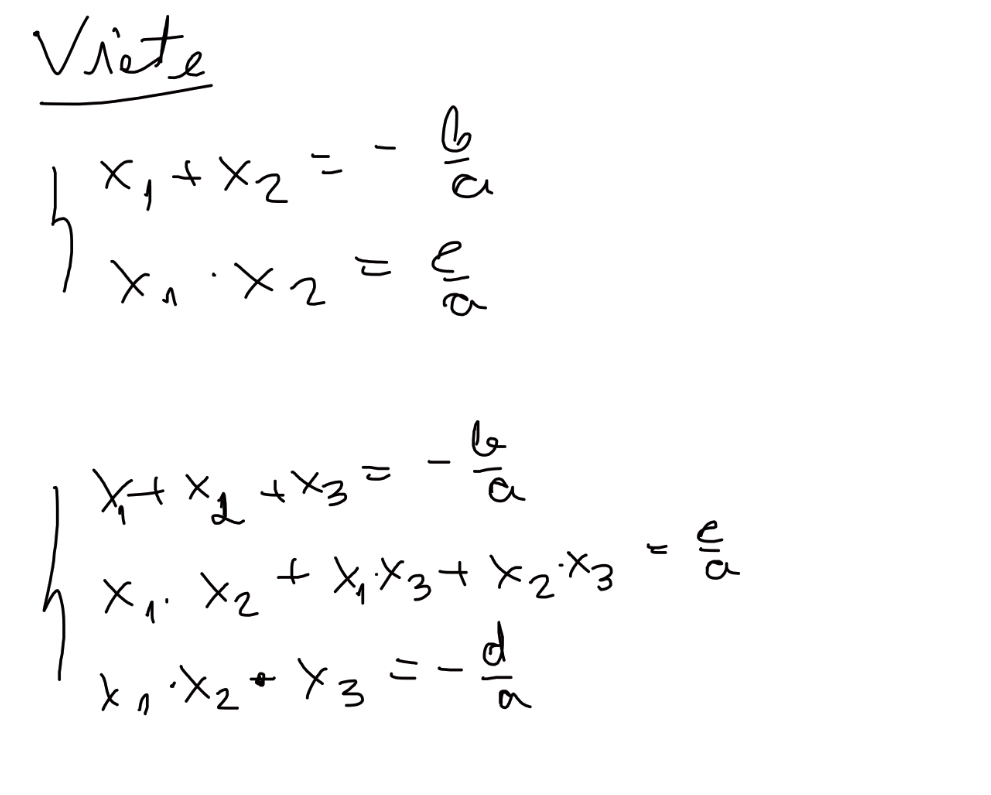 Viete
x₁ + x₂ = - b/a
x₁ · x₂ = c/a
x₁ + x₂ + x₃ = - b/a
x₁ · x₂ + x₁ · x₃ + x₂ · x₃ = c/a
x₁ · x₂ · x₃ = - d/a